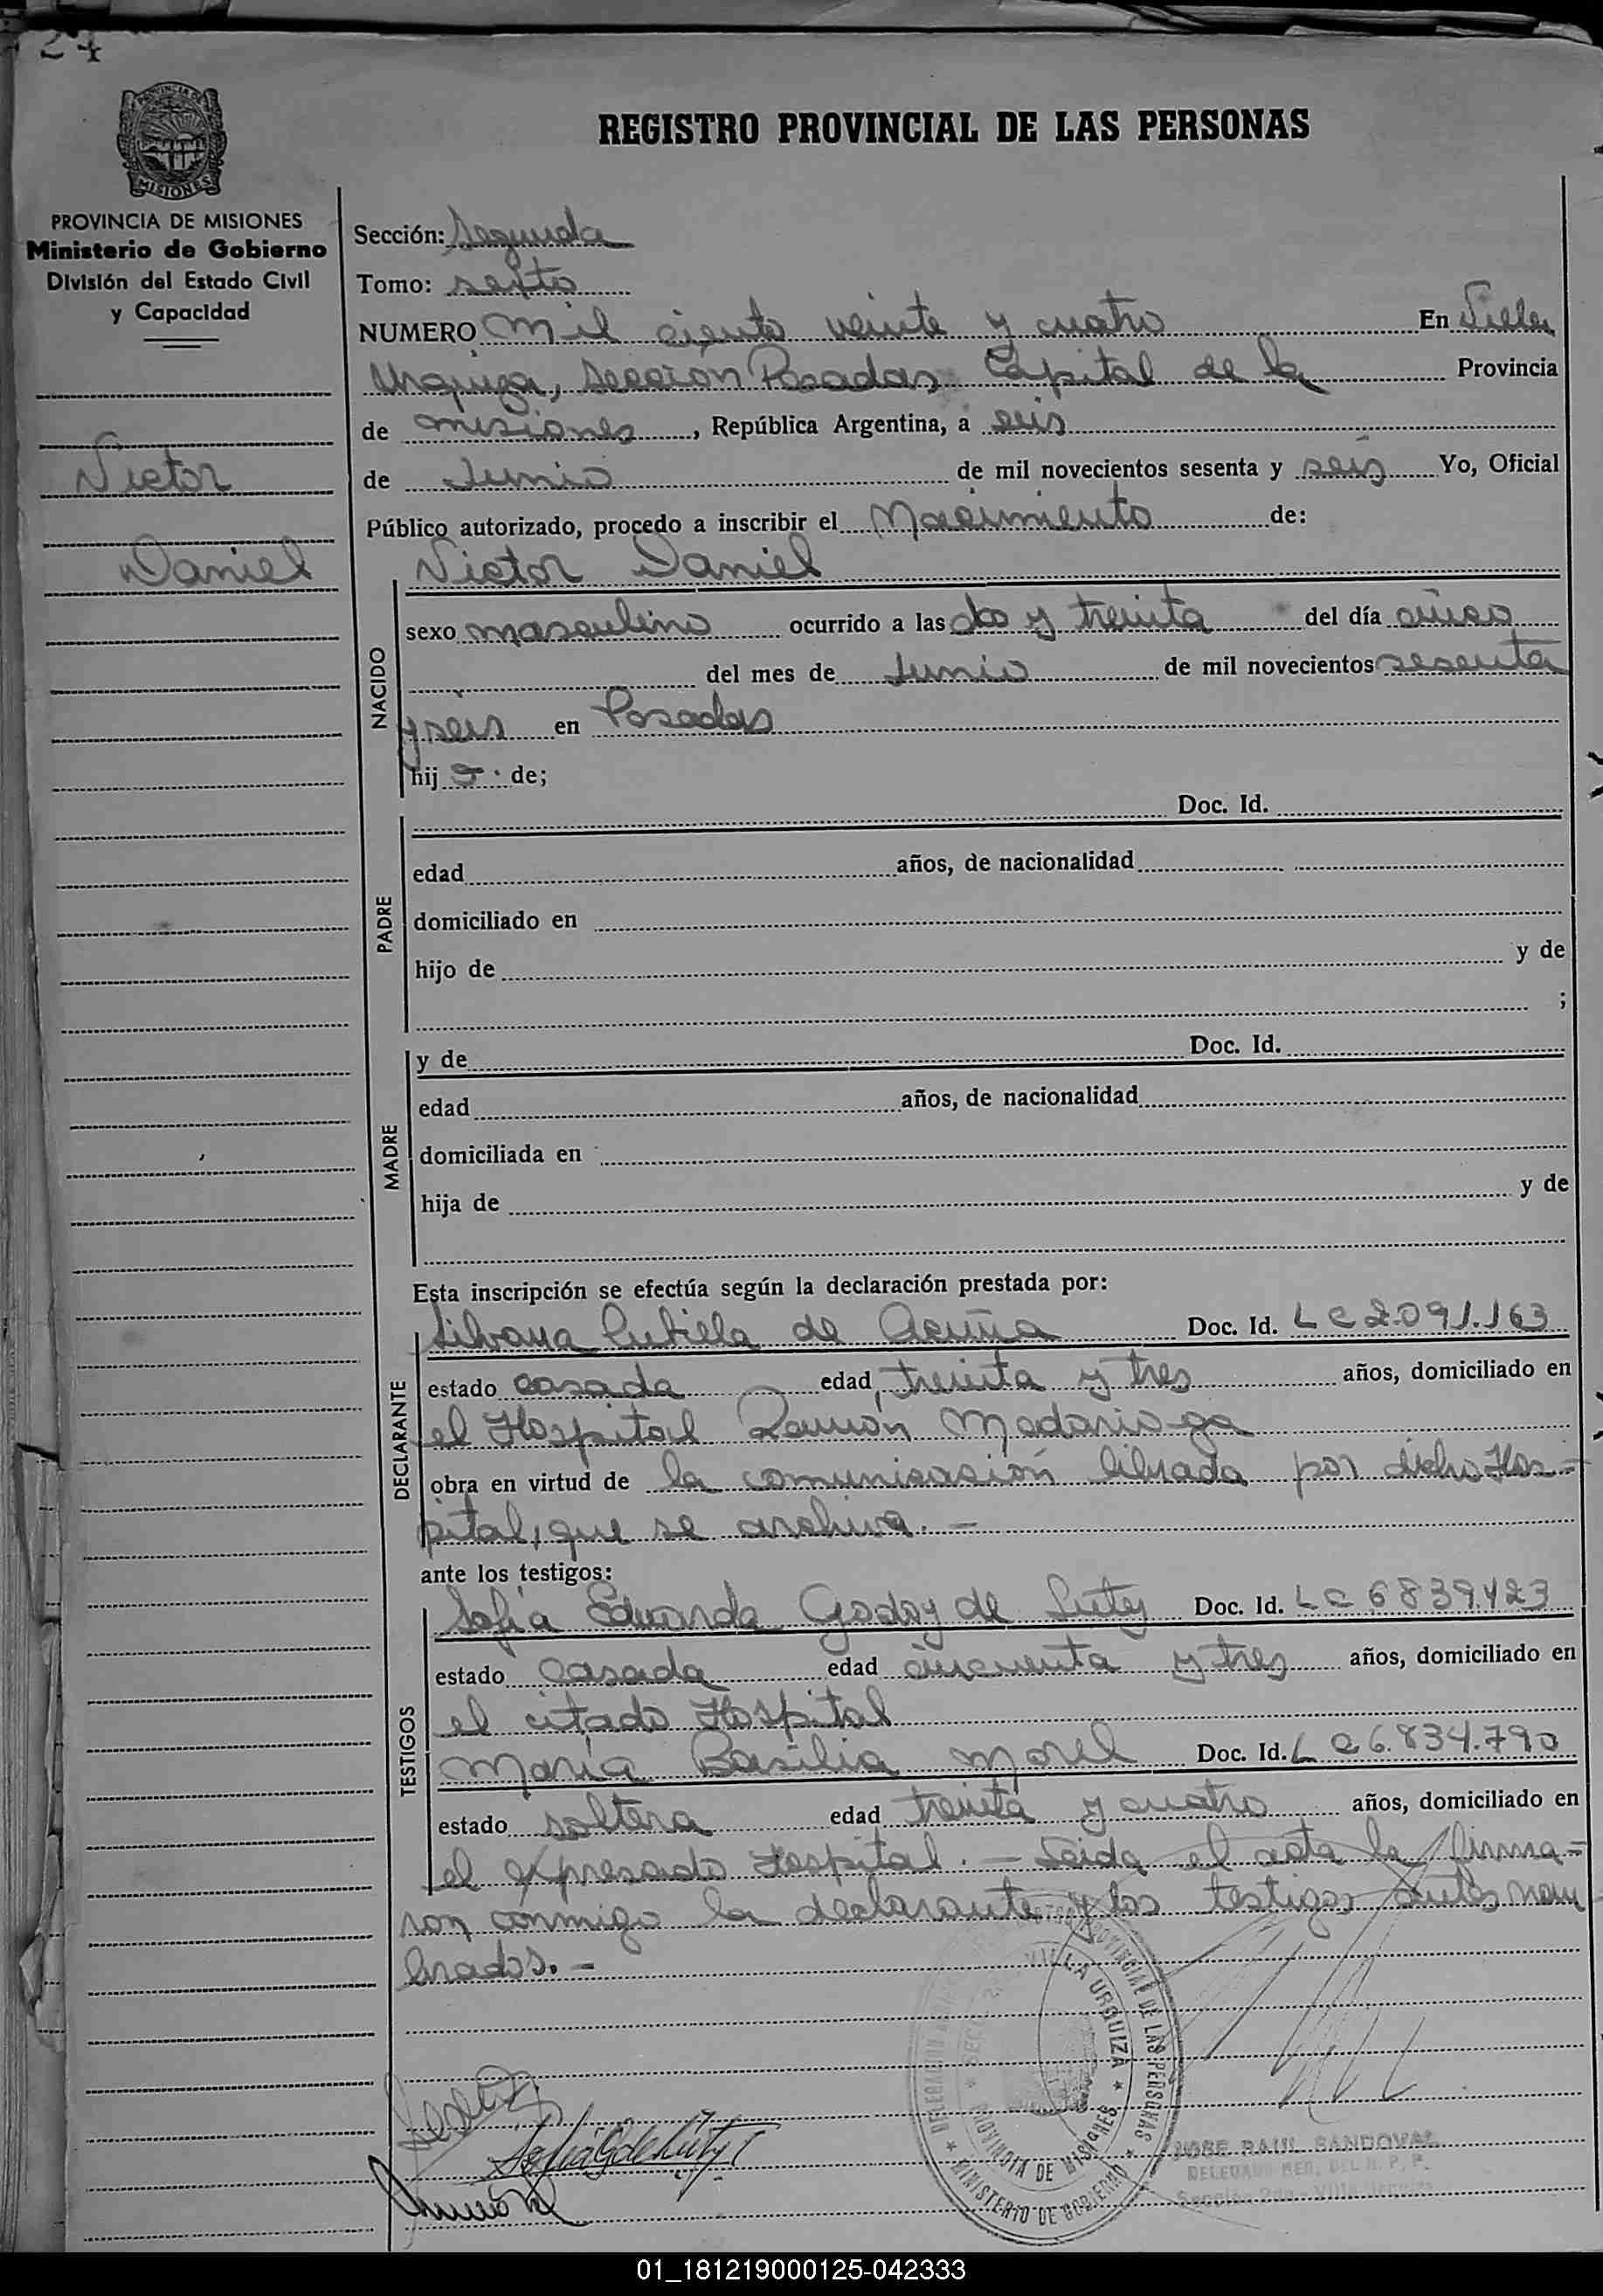 24
MISIONES
PROVINCIA DE MISIONES
Ministerio de Gobierno
División del Estado Civil
y Capacidad
Victor
Daniel
REGISTRO PROVINCIAL DE LAS PERSONAS
Sección: Segunda
Tomo: sexto
NUMERO mil ciento veinte y cuatro En Villa
Urquiza, sección Posadas Capital de la Provincia
de misiones, República Argentina, a seis
de Junio de mil novecientos sesenta y seis Yo, Oficial
Público autorizado, procedo a inscribir el Nacimiento de:
Victor Daniel
NACIDO
sexo masculino ocurrido a las dos y treinta del día cinco
del mes de Junio de mil novecientos sesenta
y seis en Posadas
hijo de;
PADRE
Doc. Id.
edad años, de nacionalidad
domiciliado en
hijo de y de
;
MADRE
y de Doc. Id.
edad años, de nacionalidad
domiciliada en
hija de y de
Esta inscripción se efectúa según la declaración prestada por:
DECLARANTE
Silvana de Acuña Doc. Id. LC 2.091.163
estado casada edad treinta y tres años, domiciliado en
el Hospital Ramón Madariaga
obra en virtud de la comunicación librada por dicho Hos=
pital, que se archiva. -
ante los testigos:
TESTIGOS
Sofia Eduarda Godoy de Doc. Id. LC 6839.423
estado casada edad cincuenta y tres años, domiciliado en
el citado Hospital
María Basilia Morel Doc. Id. L C 6.834.790
estado soltera edad treinta y cuatro años, domiciliado en
el expresado Hospital. - Leida el acta la firma=
ron conmigo la declarante y los testigos antes nom
brados. -
PROVINCIAL DE LAS PERSONAS
VILLA URQUIZA
PROVINCIA DE MISIONES
MINISTERIO DE GOBIERNO
JOSE RAUL SANDOVAL
01_181219000125-042333